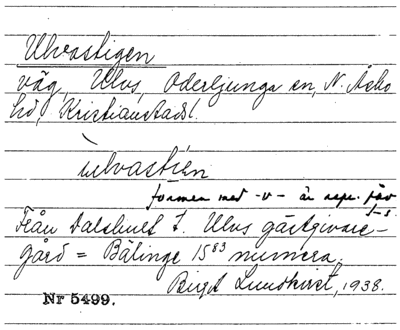 Ulvastigen
väg, Ulvs, Oderljunga sn, N. Åsbo
hd, Kristianstads l.
ulvastien
formen med -v- är rspr. för
Från Dalshult t. Ulvs gästgivare-
gård = Bälinge 15⁸³ numera.
Birgit Lundkvist, 1938.
Nr 5499.